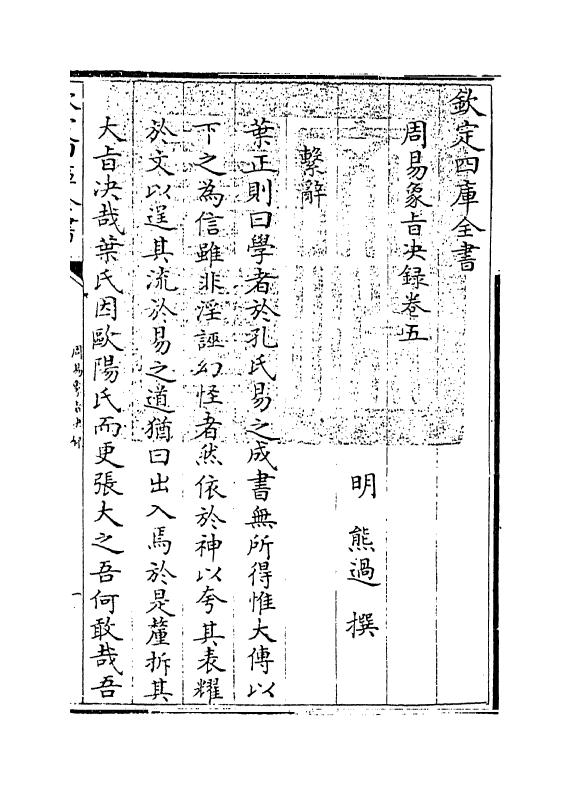 欽定四庫全書
周易象旨决録卷五
明 熊過 撰
繫辭
葉正則曰學者於孔氏易之成書無所得惟大傳以
下之為信雖非淫誣幻怪者然依於神以夸其表耀
於文以逞其流於易之道猶曰出入焉於是釐拆其
大旨决哉葉氏因歐陽氏而更張大之吾何敢哉吾
周易象旨决録
一